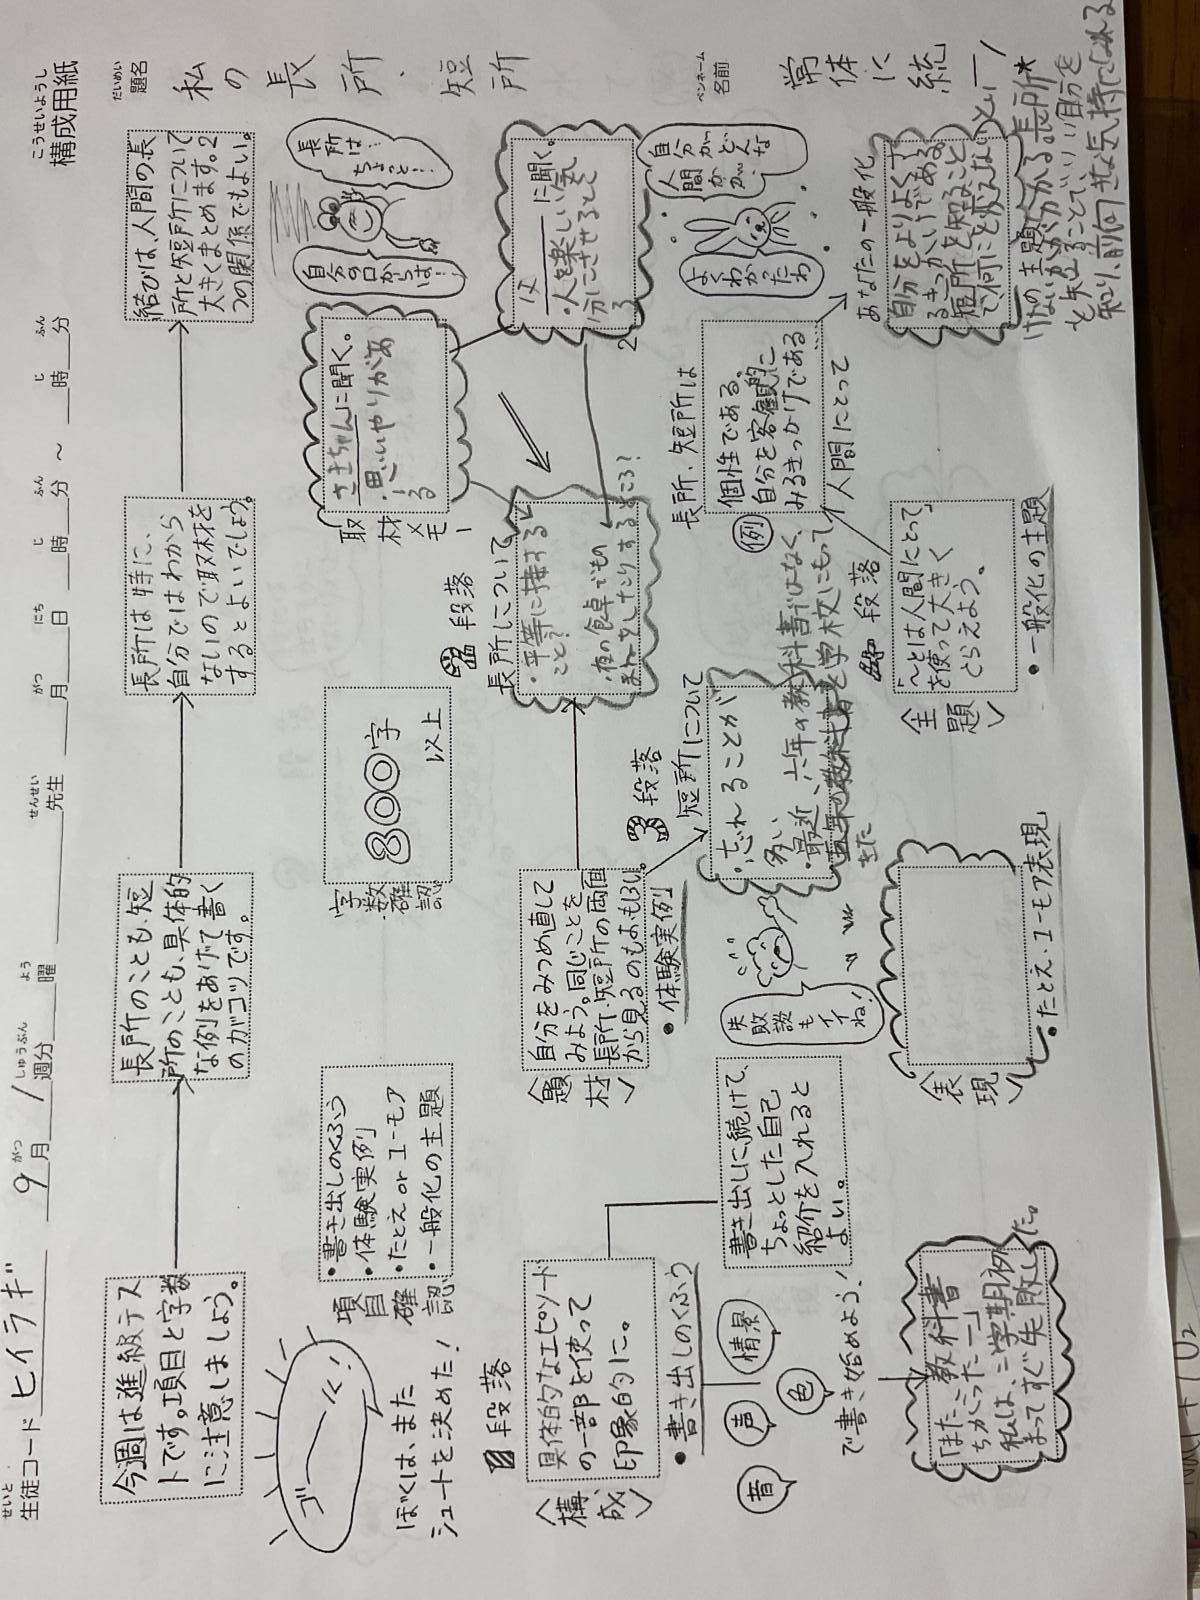 構成用紙
こうせいようし
生徒コード ヒイラギ 9月1週分 曜 先生 月 日 時 分 〜 時 分
せいと がつ しゅうぶん よう せんせい がつ にち じ ふん じ ふん
題名
だいめい
私の長所、短所
ペンネーム
名前
常体に統一
今週は進級テス
トです。項目と字数
に注意しましょう。
長所のことも、短
所のことも、具体的
な例をあげて書く
のがコツです。
長所は特に、
自分ではわから
ないので取材を
するとよいでしょう。
結びは、人間の長
所と短所について
大きくまとめます。2
つの関係でもよい。
ゴーール!
ぼくは、また
シュートを決めた!
項目確認
・書き出しのくふう
・体験実例
・たとえ or ユーモア
・一般化の主題
字数確認
800字
以上
取材メモ
さきちゃんに聞く。
・思いやりがあ
る
長所は
ちょっと…
自分の口からは…
父に聞く。
・人を楽しい気
分にさせるところ
段落
〈構成〉
具体的なエピソード
の一部を使って
印象的に。
・書き出しのくふう
音
声
色
情景
で書き始めよう!
「また、教科書
ちがったー」
私は、二学期初
まってすぐ失敗した。
書き出しに続けて、
ちょっとした自己
紹介を入れると
よい。
〈題材〉
自分をみつめ直して
みよう。同じことを
長所・短所の両面
から見るのもおもしろい。
・体験実例
失敗談も
イイね!
段落
長所について
・平等に接する
こと?
・夜の食卓でもの
まねをしたりするところ?
段落
短所について
・忘れることが
多い
・最近、六年の教科書ではなく、
五年の教科書を学校にもって
きた
〈表現〉
・たとえ・ユーモア表現
段落
〈主題〉
「〜とは人間にとって」
を使って大きく
とらえよう。
・一般化の主題
長所、短所は
例
個性である。
自分を客観的に
みるきっかけである…
人間にとって
自分がどんな
人間かが、
よくわかったわ
あなたの一般化
自分をよりよくす
るきっかけである。
短所を知ること
で、何にも変えない
けない
の主題がわかる。長所*
を知ることで、いい自分を
知り、前向きな気持になれる